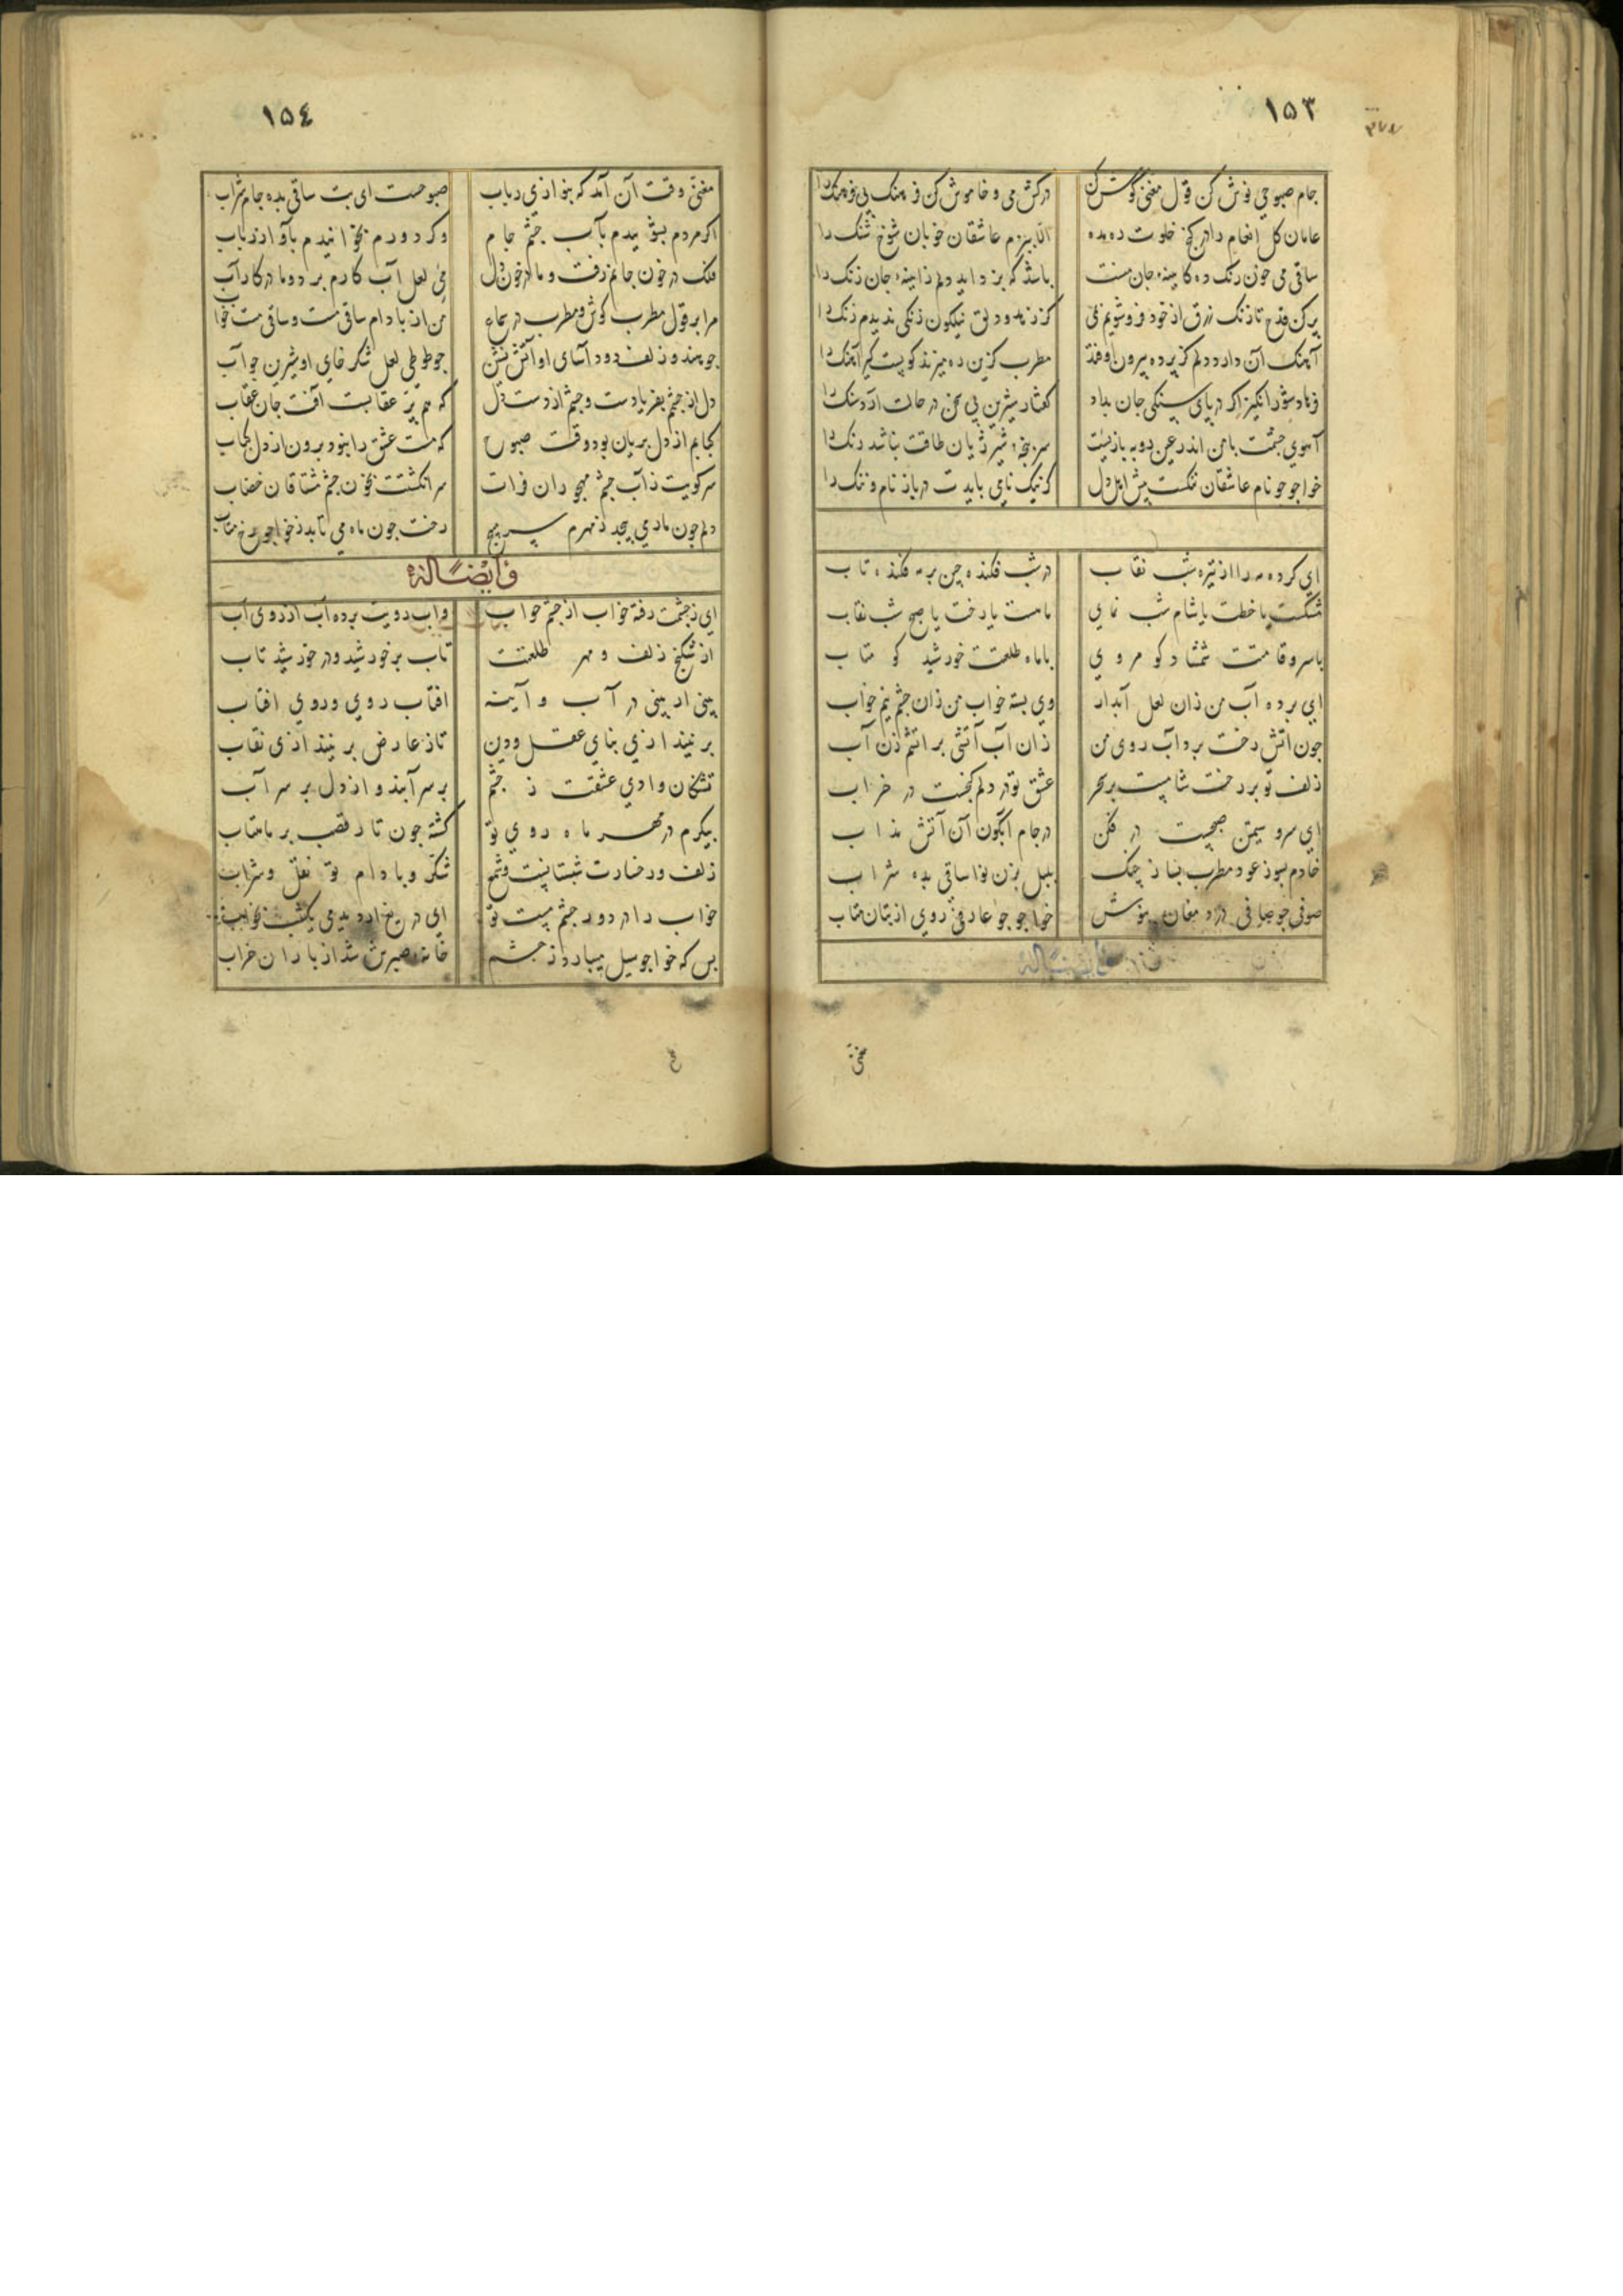 ١٥٣
جام صبوحی نوش کن قول مغنی گوش کن درکش می و خاموش کن فرهنک بی فرهنک را
عامان کل انعام را در کنج خلوت ره مده الا ببزم عاشقان خوبان شوخ شنک را
ساقی می جون رنک ده کایینه جان منست باشد که بزداید دلم زایینه جان زنک را
پر کن قدح تا رنک زرق از خود فرو شویم بمی کز زهد و دلق نیلکون رنکی ندیدم رنک را
آهنک آن دارد دلم کز پرده بیرون اوفتد مطرب کزین ره میزند کو پست کیر آهنک را
فرهاد شورانکیز اکر در پای سنکی جان بداد کفتار شیرین بی سخن در حالت آرد سنک را
آهوی چشمت با من اندر عین روبه بازیست سر پنجه شیر ژیان طاقت نباشد رنک را
خواجو جو نام عاشقان ننکست پیش اهل دل کر نیک نامی بایدت درباز نام و ننک را
ای کرده مه را از تیره شب نقاب در شب فکنده چین بر مه فکنده تاب
شکست یا خطت یا شام شب نمای ماهت یا رخت یا صبح شب نقاب
با سرو قامتت شمشاد کو مروی با ماه طلعتت خورشید کو متاب
ای برده آب من زان لعل آبدار وی بسته خواب من زان چشم نیم خواب
جون اتش رخت برد آب روی من زان آب آتشی بر اتشم زن آب
زلف تو بر رخت شامیست بر سحر عشق تو در دلم کنجیست در خراب
ای سرو سیمتن صبحیست در فکن در جام آبگون آن آتش مذاب
خادم بسوز عود مطرب بساز چنک بلبل بزن نوا ساقی بده شراب
صوفی جو صافی درد مغان بنوش خواجو جو عارفی روی از بتان متاب
وایضا له
مغنی
١٥٤
مغنی وقت آن آمد که بنوازی رباب صبوحست ای بت ساقی بده جام شراب
اکر مردم بشوییدم بآب چشم جام وکر دورم بخوانیدم بآواز رباب
فلک در خون جانم رفت و ما در خون دل می لعل آب کارم برد و ما در کار آب
مرا بر قول مطرب کوش و مطرب در سماع من از بادام ساقی مست و ساقی مست خواب
جو هندو زلف دود آسای او آتش نشین جو طوطی لعل شکر خای او شیرین جواب
دل از چشمم بفریادست و چشم از دست دل که هم پر عقابست آفت جان عقاب
کبابم از دل بریان بود وقت صبوح که مست عشق را نبود برون از دل کباب
سر کویت ز آب چشم مهجوران فرات سر انکشتت بخون چشم مشتاقان خضاب
دلم چون مار می پیچد ز مهرم سر مپیچ رخت جون ماه می تابد ز خواجو رخ متاب
وایضا له
ای ز چشمت رفته خواب از چشم خواب واب رویت برده آب از روی آب
از شکنج زلف و مهر طلعتت تاب بر خورشید و در خورشید تاب
بینی ار بینی در آب و آینه افتاب روی و روی افتاب
بر نیندازی بنای عقل و دین تا ز عارض بر نیندازی نقاب
تشنکان وادی عشقت ز چشم بر سر آبند و از دل بر سر آب
پیکرم در مهر ماه روی تو کشته جون تار قصب بر ماهتاب
زلف و رخسارت شبستانیست و شمع شکر و بادام تو نقل و شراب
خواب را در دور چشم مست تو ای دریغ ار دیدمی یکشب بخواب
بس که خواجو سیل میبارد ز چشم خانه صبرش شد از باران خراب